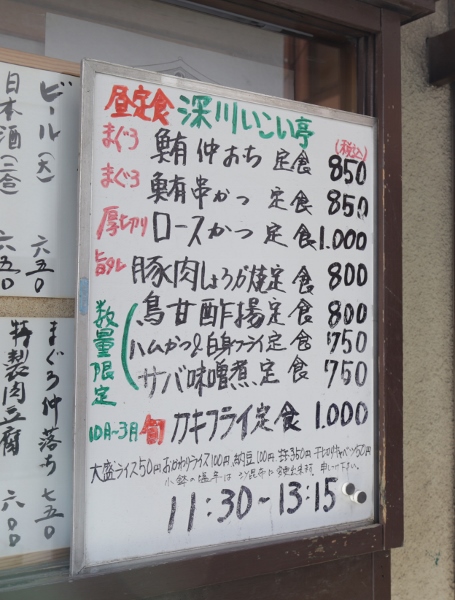 昼定食 深川いこい亭
(税込)
まぐろ 鮪仲おち定食 850
まぐろ 鮪串かつ定食 850
厚切り ロースかつ定食 1.000
旨タレ 豚肉しょうが焼定食 800
数量限定
鳥甘酢揚定食 800
ハムかつ&白身フライ定食 750
サバ味噌煮定食 750
10月~3月 旬 カキフライ定食 1.000
大盛ライス50円 おかわりライス100円 納豆100円 350円 キャベツ50円
11:30~13:15
ビール(大) 六五〇
日本酒(二合) 六五〇
まぐろ仲落ち 七五〇
特製肉豆腐 六〇〇